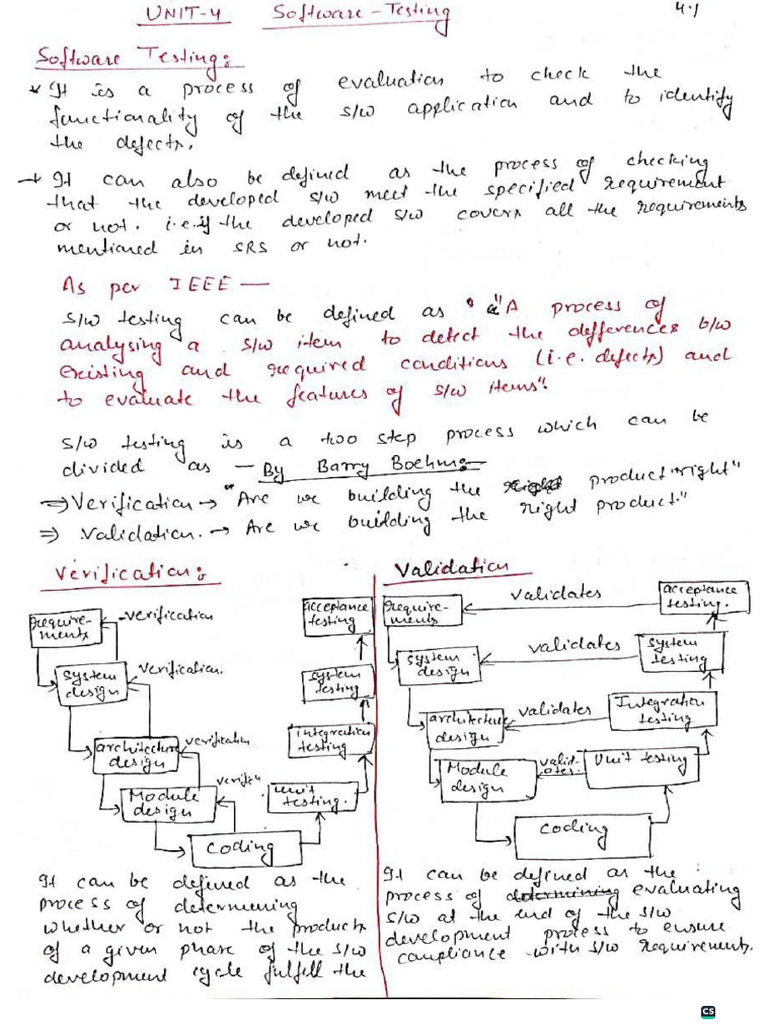 UNIT-4 Software-Testing 4.1
Software Testing:
* It is a process of evaluation to check the
functionality of the s/w application and to identify
the defects.
→ It can also be defined as the process of checking
that the developed s/w meet the specified requirement
or not. i.e. if the developed s/w covers all the requirements
mentioned in SRS or not.
As per IEEE —
s/w testing can be defined as "A process of
analysing a s/w item to detect the differences b/w
existing and required conditions (i.e. defects) and
to evaluate the features of s/w items".
s/w testing is a two step process which can be
divided as — By Barry Boehm:-
⇒ Verification → "Are we building the product "right"
⇒ Validation. → Are we building the right product."
Verification:
Require-
ments
verification
System
design
verification.
architecture
design
verification
Module
design
verifin
coding
unit
testing.
integration
testing
system
testing
acceptance
testing
It can be defined as the
process of determening
whether or not the products
of a given phase of the s/w
development cycle fulfill the
Validation
Require-
ments
validates
acceptance
testing.
System
design
validates
System
testing
architecture
design
validates
Integration
testing
Module
design
valid-
ates.
Unit testing
coding
It can be defined as the
process of determining evaluating
s/w at the end of the s/w
development process to ensure
compliance with s/w requirements.
CS